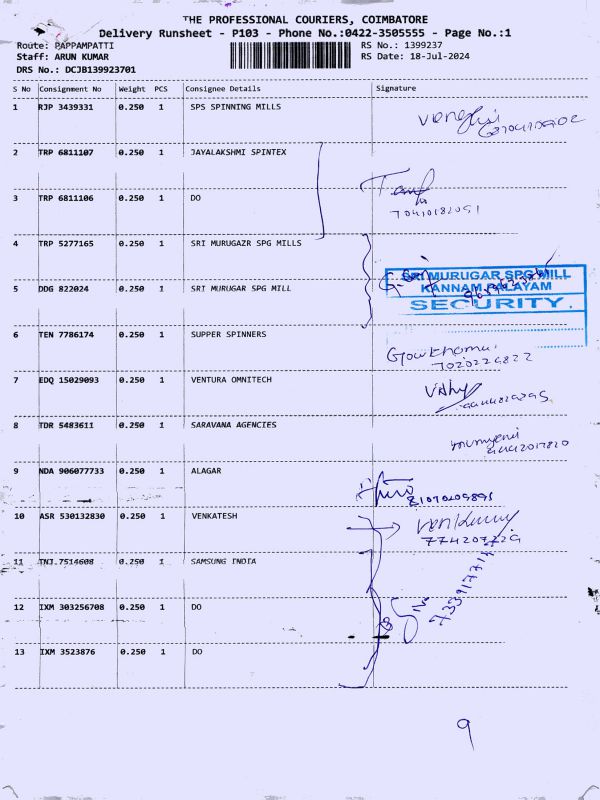 THE PROFESSIONAL COURIERS, COIMBATORE
Delivery Runsheet - P103 - Phone No.:0422-3505555 - Page No.:1
Route: PAPPAMPATTI
RS No.: 1399237
Staff: ARUN KUMAR
RS Date: 18-Jul-2024
DRS No.: DCJB139923701
S No Consignment No Weight PCS Consignee Details Signature
1 RJP 3439331 0.250 1 SPS SPINNING MILLS
2 TRP 6811107 0.250 1 JAYALAKSHMI SPINTEX
3 TRP 6811106 0.250 1 DO
4 TRP 5277165 0.250 1 SRI MURUGAZR SPG MILLS
SRI MURUGAR SPG MILL
KANNAM PALAYAM
SECURITY.
5 DDG 822024 0.250 1 SRI MURUGAR SPG MILL
6 TEN 7786174 0.250 1 SUPPER SPINNERS
7020226822
7 EDQ 15029093 0.250 1 VENTURA OMNITECH
8 TDR 5483611 0.250 1 SARAVANA AGENCIES
9 NDA 906077733 0.250 1 ALAGAR
10 ASR 530132830 0.250 1 VENKATESH
11 TNJ 7514608 0.250 1 SAMSUNG INDIA
12 IXM 303256708 0.250 1 DO
13 IXM 3523876 0.250 1 DO
9